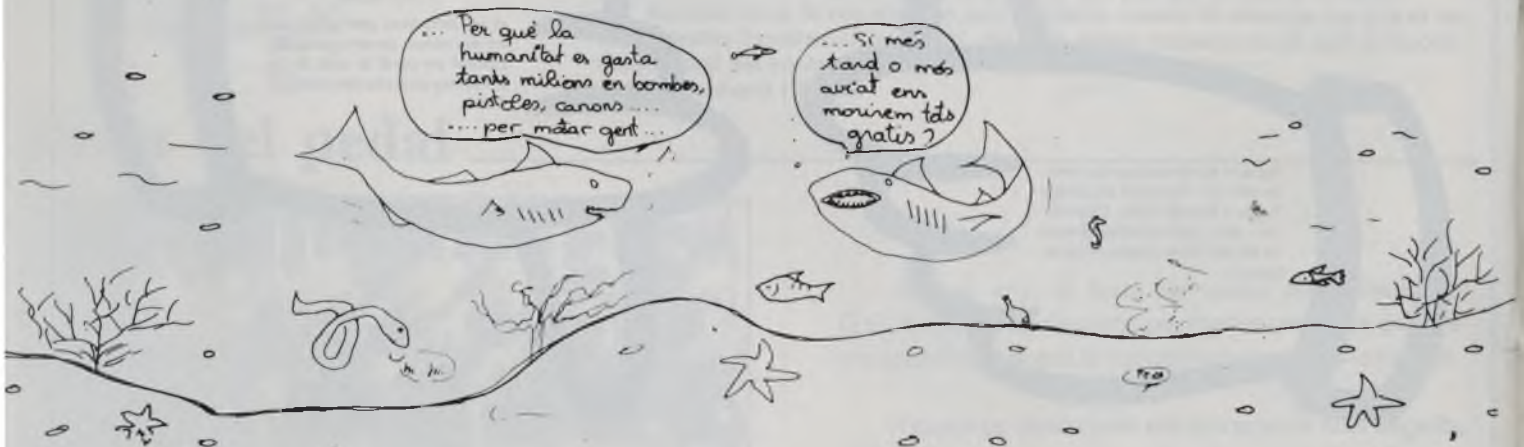 ... Per què la
humanitat es gasta
tants milions en bombes,
pistoles, canons ....
.... per matar gent ...
... Si més
tard o més
aviat ens
morirem tots
gratis?